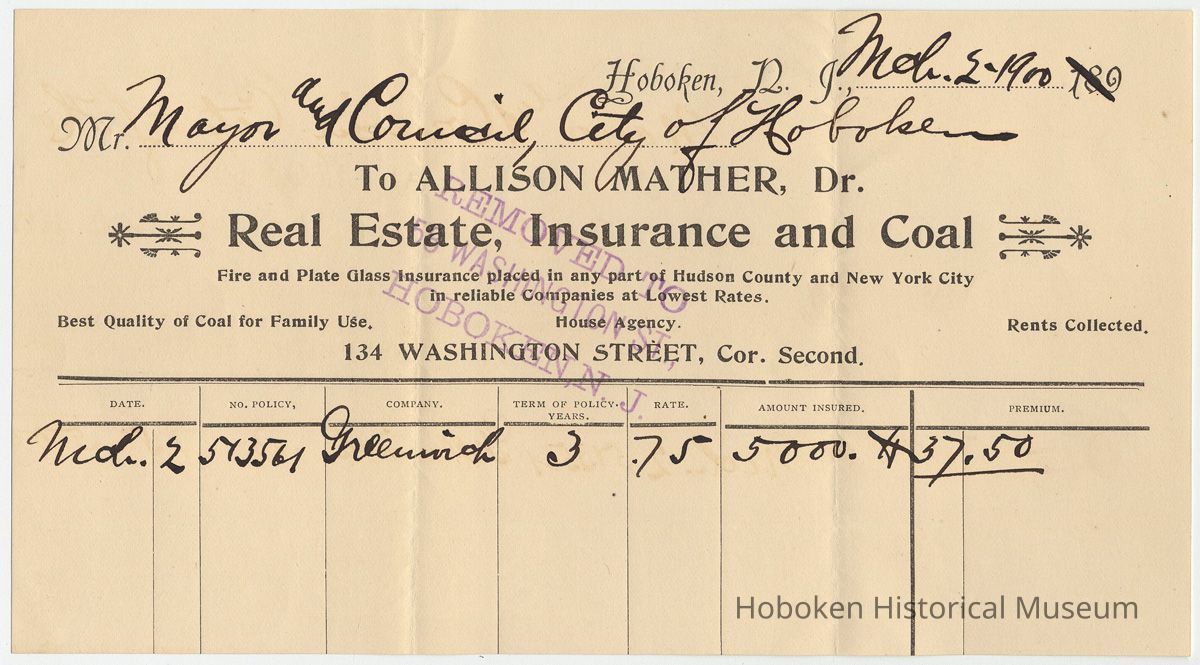 Hoboken, N. J., Mch. 2-1900 189
Mr. Mayor and Council, City of Hoboken
To ALLISON MATHER, Dr.
Real Estate, Insurance and Coal
Fire and Plate Glass Insurance placed in any part of Hudson County and New York City
in reliable Companies at Lowest Rates.
Best Quality of Coal for Family Use. House Agency. Rents Collected.
134 WASHINGTON STREET, Cor. Second.
REMOVED TO
WASHINGTON ST.,
HOBOKEN, N. J.
DATE. NO. POLICY, COMPANY. TERM OF POLICY. YEARS. RATE. AMOUNT INSURED. PREMIUM.
Mch. 2 513561 Greenwich 3 .75 5000. $37.50
Hoboken Historical Museum